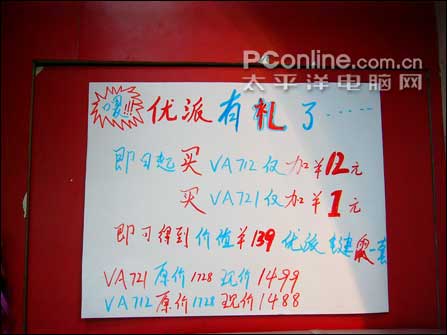 PConline.com.cn
太平洋电脑网
优派有礼了……
即日起买VA712仅加￥12元
买VA721仅加￥1元
即可得到价值￥139优派键鼠一套
VA721原价1728现价1499
VA712原价1728现价1488